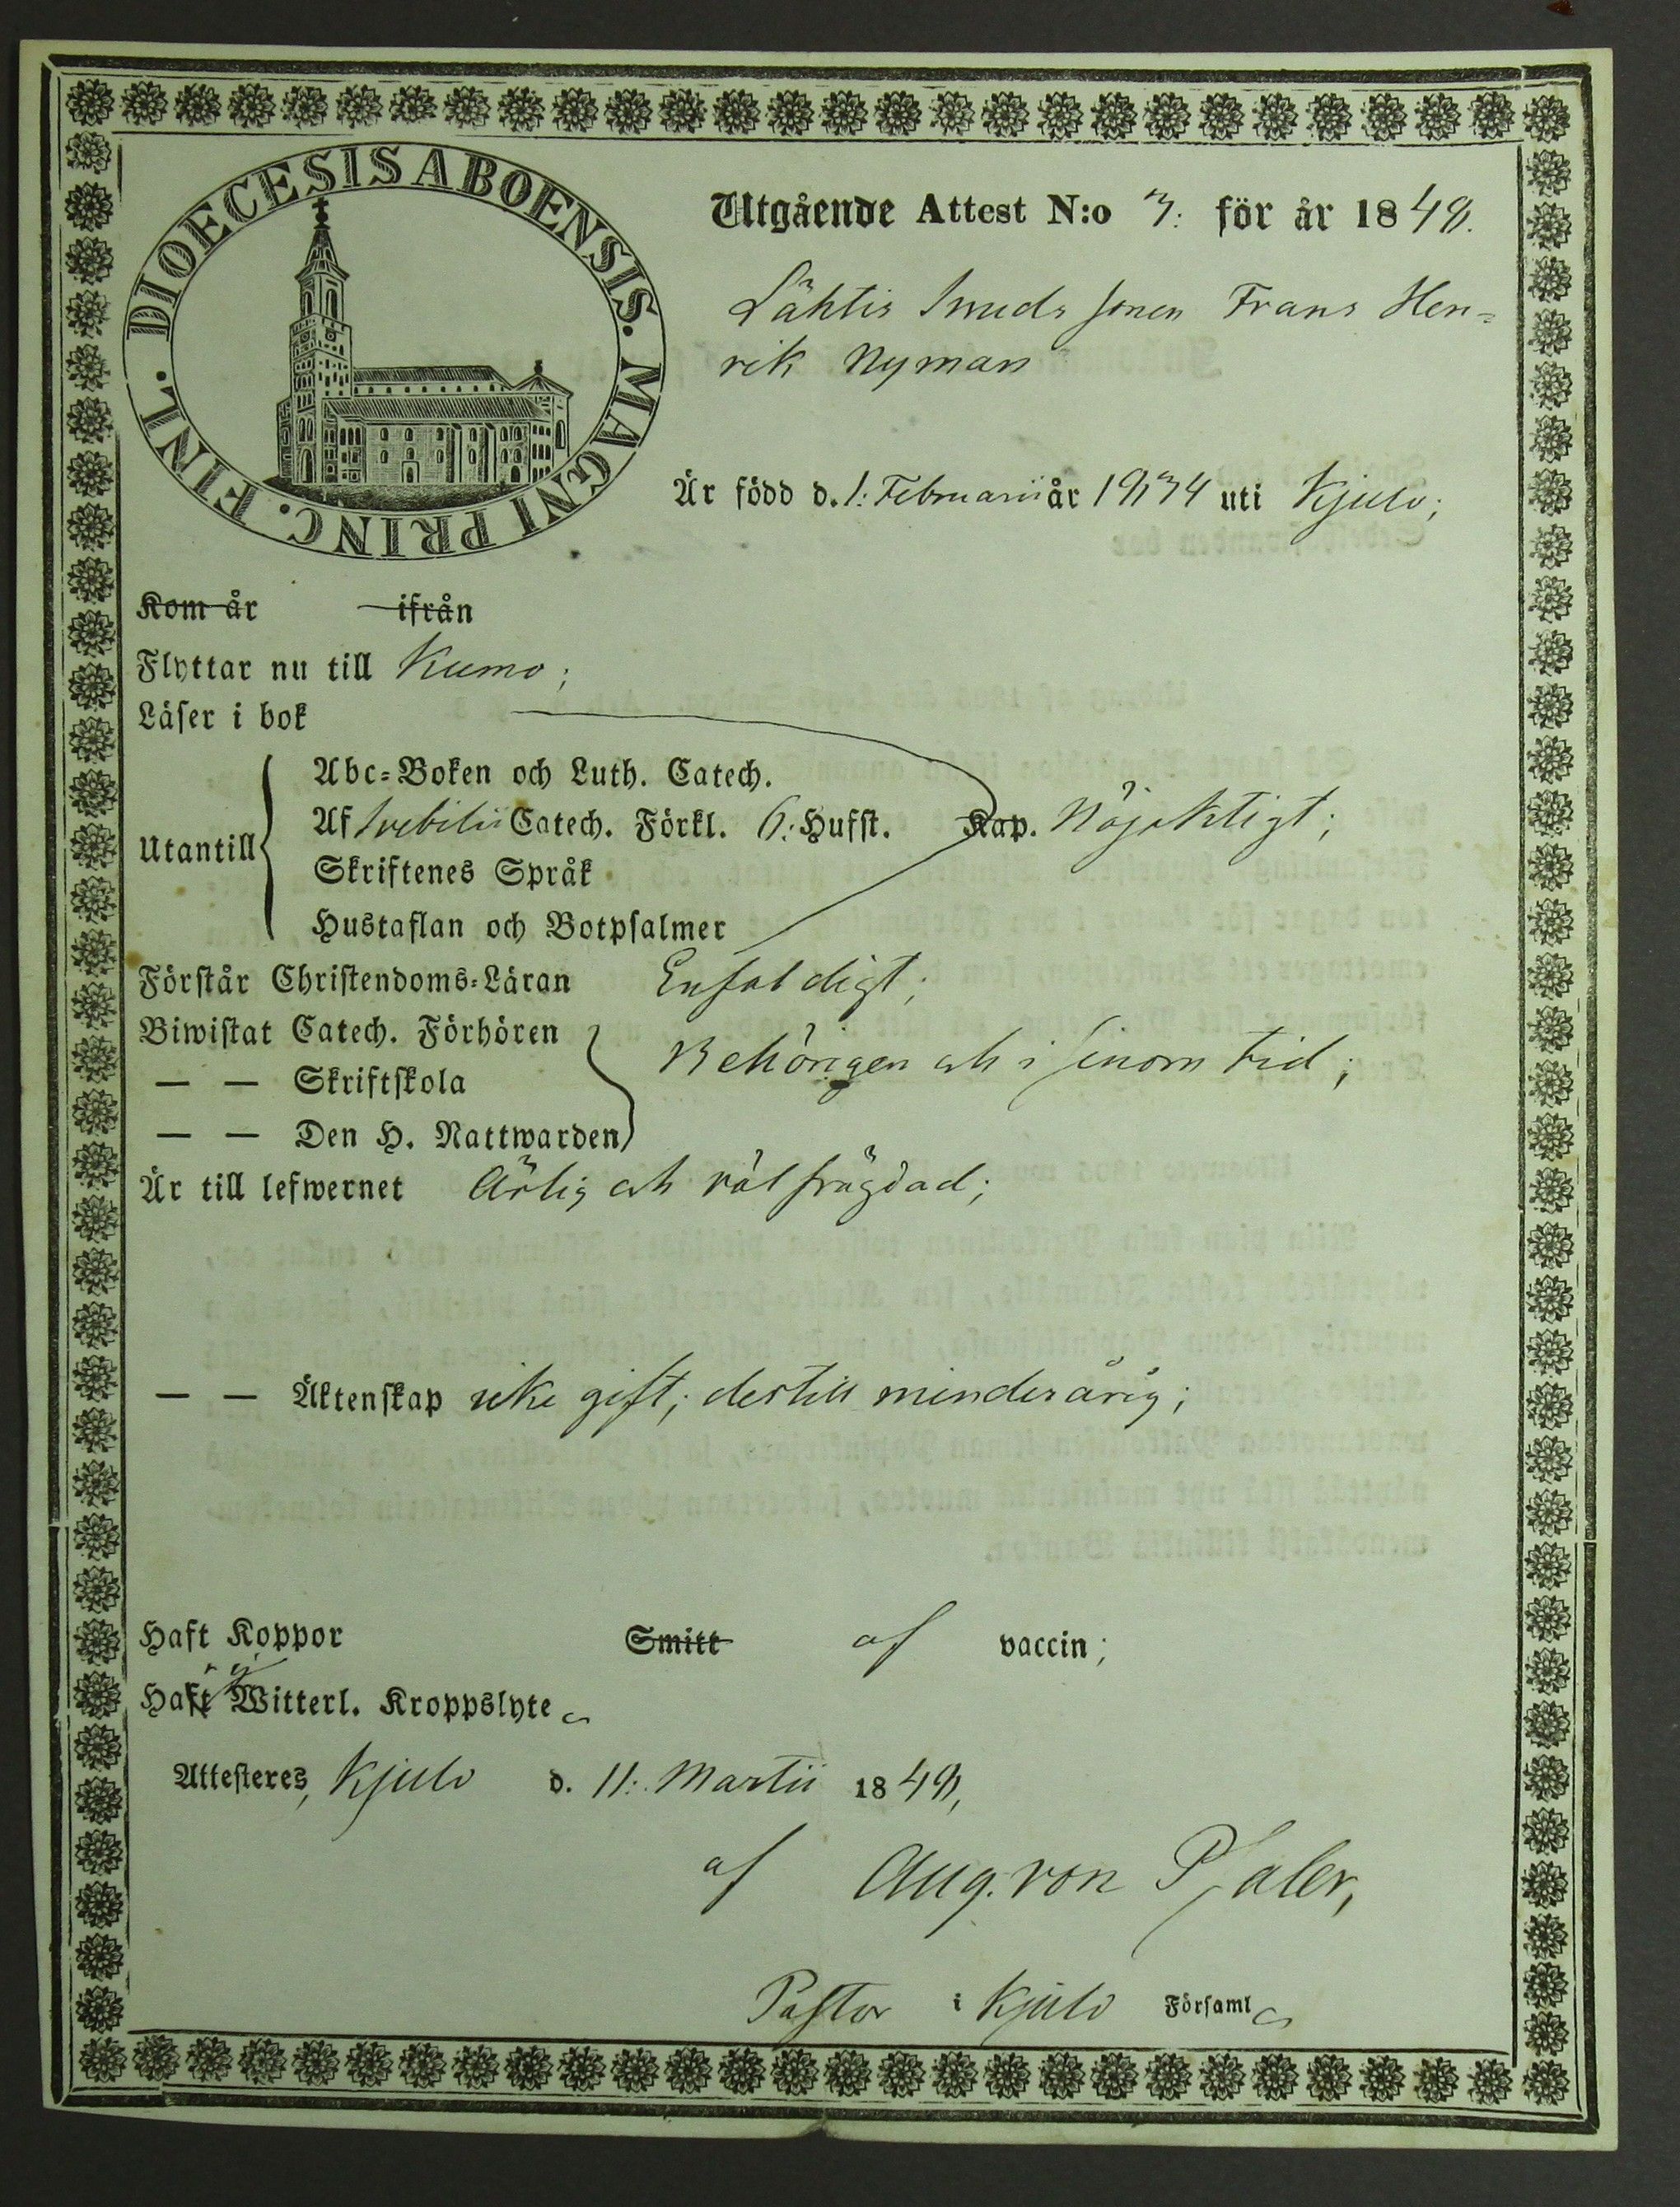 DIOECESIS ABOENSIS. MAGNI PRINC. FINL.
Utgående Attest N:o 3. för år 1848.
Lähtis Smeds sonen Frans Hen=
rik Nyman
Är född d. 1: Februarii år 1834 uti Kjulo;
Kom år ifrån
Flyttar nu till Kumo;
Läser i bok
Utantill
Abc=Boken och Luth. Catech.
Af Svebilii Catech. Förkl. 6: Hufst. Kap. Nöjaktigt;
Skriftenes Språk
Hustaflan och Botpsalmer
Förstår Christendoms=Läran Enfaldigt;
Biwistat Catech. Förhören
— — Skriftskola Behörigen och i sinom tid;
— — Den H. Nattwarden
Är till lefwernet Ärlig och välfrägdad;
— — Äktenskap icke gift; dertill minderårig;
Haft Koppor Smitt af vaccin;
Haft ej Witterl. Kroppslyte
Attesteres, Kjulo d. 11: Martii 1848,
af Aug. von Pfaler,
Pastor i Kjulo Församl